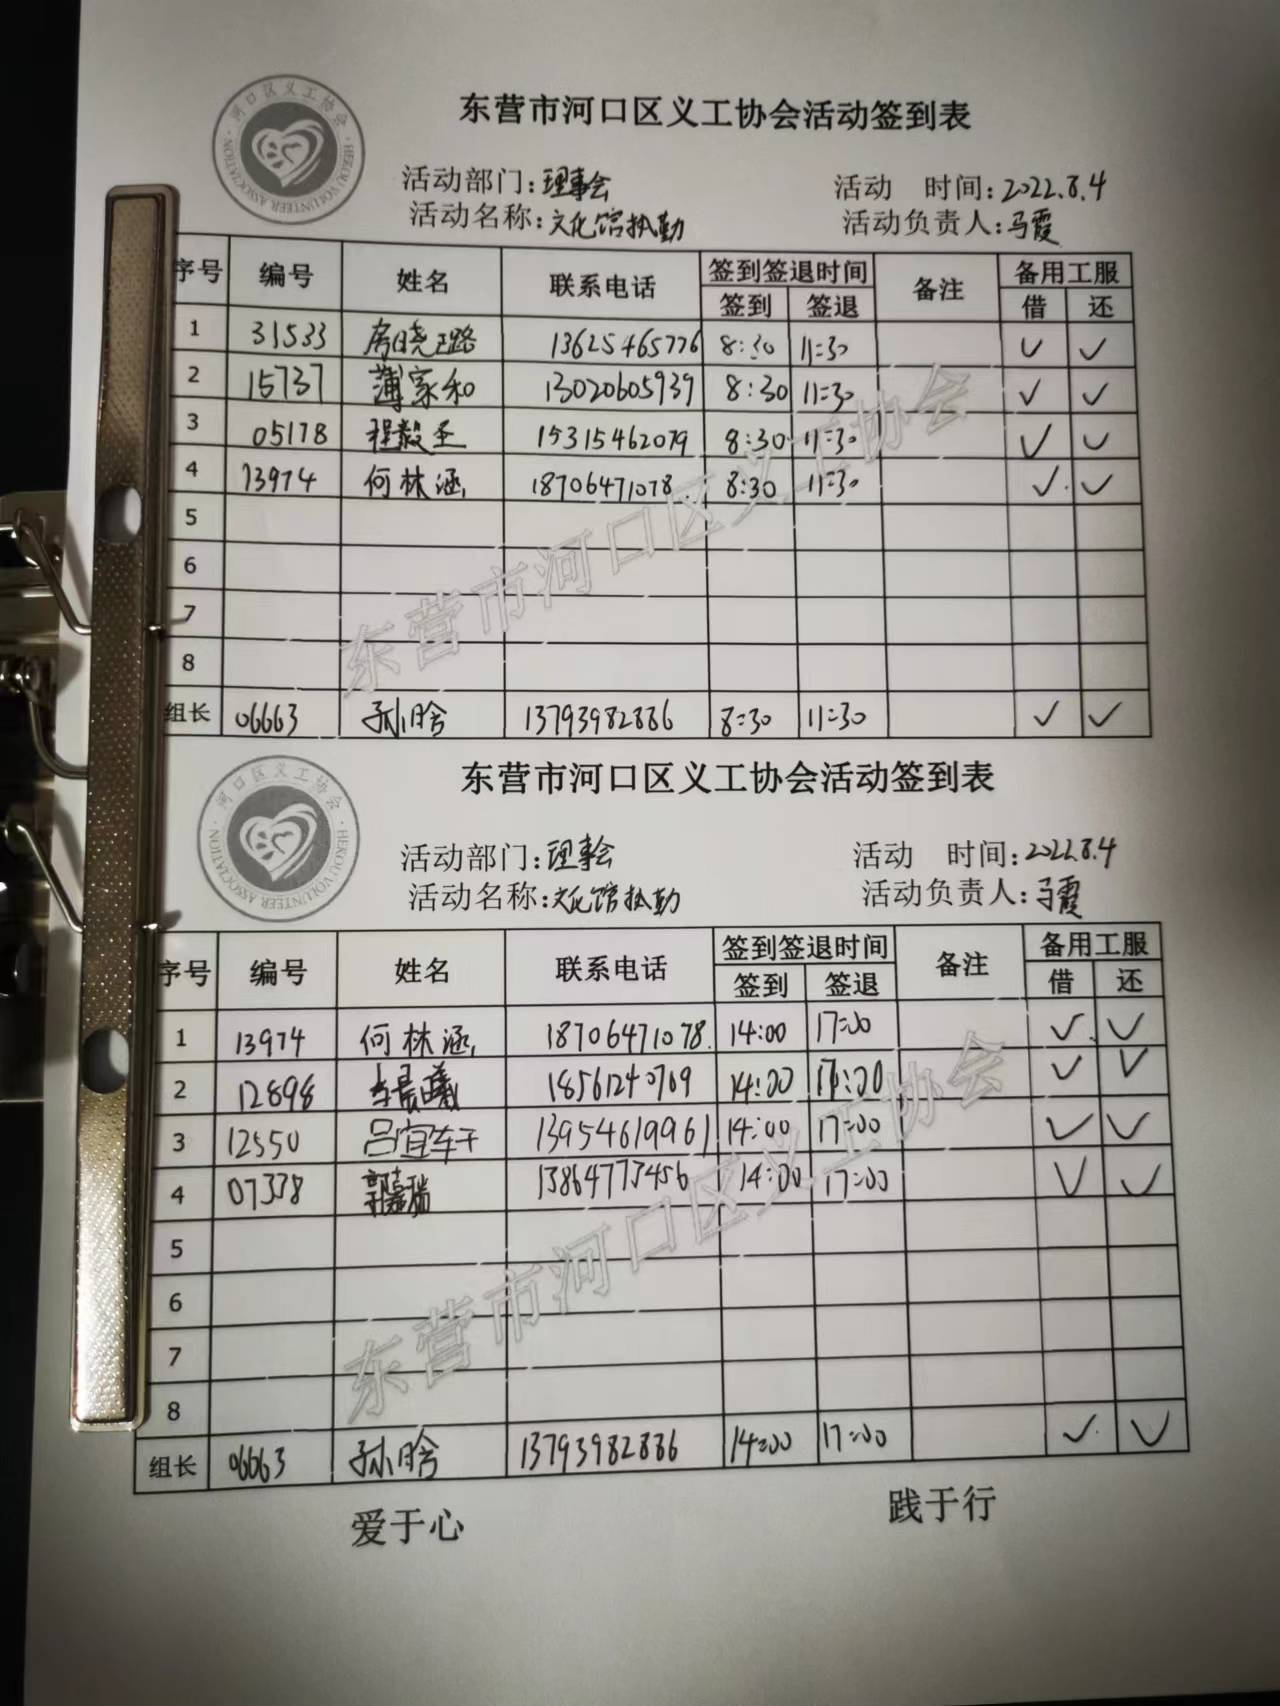 河口区义工协会
HEKOU VOLUNTEER ASSOCIATION
东营市河口区义工协会活动签到表
活动部门:理事会 活动 时间:2022.8.4
活动名称:文化馆执勤 活动负责人:马霞
序号 编号 姓名 联系电话 签到签退时间 备注 备用工服
签到 签退 借 还
1 31533 房晓璐 13625465776 8:30 11:30 ✓ ✓
2 15737 薄家和 13020605939 8:30 11:30 ✓ ✓
3 05178 程毅圣 15315462079 8:30 11:30 ✓ ✓
4 13974 何林涵 18706471078 8:30 11:30 ✓ ✓
5
6
7
8
组长 06663 孙晗 13793982886 8:30 11:30 ✓ ✓
东营市河口区义工协会
河口区义工协会
HEKOU VOLUNTEER ASSOCIATION
东营市河口区义工协会活动签到表
活动部门:理事会 活动 时间:2022.8.4
活动名称:文化馆执勤 活动负责人:马霞
序号 编号 姓名 联系电话 签到签退时间 备注 备用工服
签到 签退 借 还
1 13974 何林涵 18706471078 14:00 17:00 ✓ ✓
2 12898 李晨曦 18561240769 14:00 17:00 ✓ ✓
3 12550 吕宜 13954619961 14:00 17:00 ✓ ✓
4 07338 郭嘉瑞 13864773456 14:00 17:00 ✓ ✓
5
6
7
8
组长 06663 孙晗 13793982886 14:00 17:00 ✓ ✓
东营市河口区义工协会
爱于心 践于行